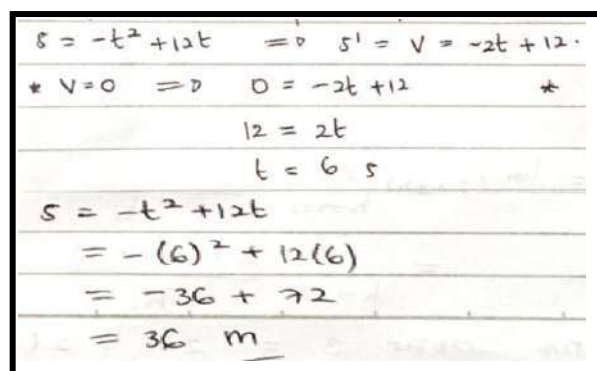 s = -t² + 12t ⇒ s' = v = -2t + 12.
* v = 0 ⇒ 0 = -2t + 12 *
12 = 2t
t = 6 s
s = -t² + 12t
= -(6)² + 12(6)
= -36 + 72
= 36 m